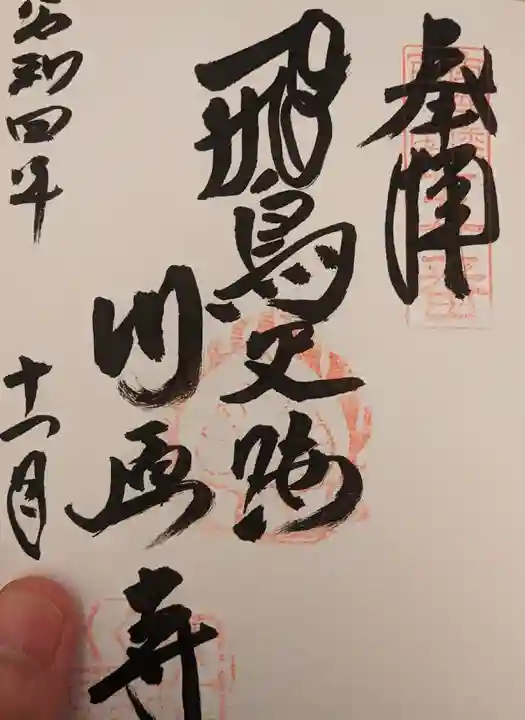 奉拝
飛鳥史跡
川原寺
令和四年 十一月